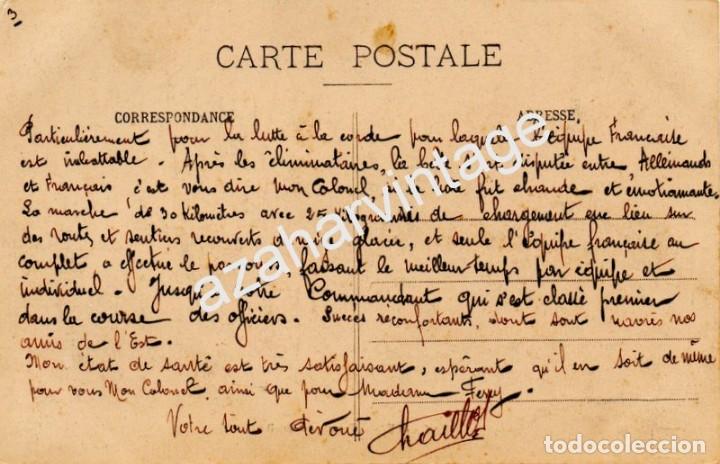 3
CARTE POSTALE
CORRESPONDANCE
ADRESSE
Particulièrement pour la lutte à la corde pour laquelle l'équipe Française
est imbattable. Après les éliminatoires, la disputée entre Allemands
et Français c'est vous dire mon Colonel, fut chaude et émotionnante.
La marche de 30 kilomètres avec 25 kilogrammes de chargement eue lieu sur
des routes et sentiers recouverts glacée, et seule l'équipe française au
complet a effectué le parcours faisant le meilleur temps par équipe et
individuel. Jusqu'à votre Commandant qui s'est classé premier
dans la course des officiers. Succès réconfortants, dont sont navrés nos
amis de l'Est.
Mon état de santé est très satisfaisant, espérant qu'il en soit de même
pour vous Mon Colonel, ainsi que pour Madame
Votre tout dévoué
azaharvintage
todocoleccion